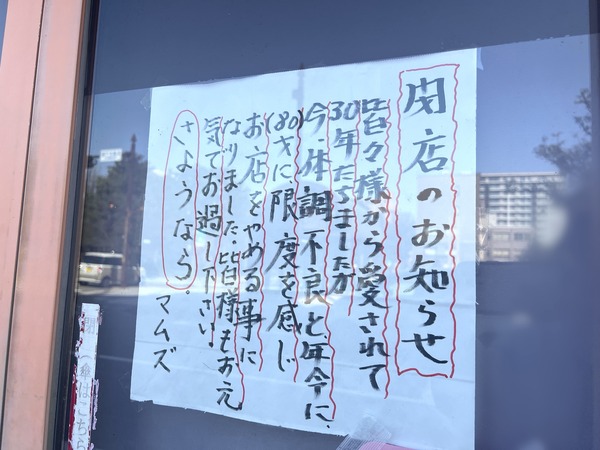 閉店のお知らせ
皆々様から愛されて
30年たちましたが
今、体調不良と、年令に、
(80才に限度を感じ
お店をやめる事に
なりました。皆様もお元
気でお過し下さい。
さようなら。
マムズ
傘はこちら